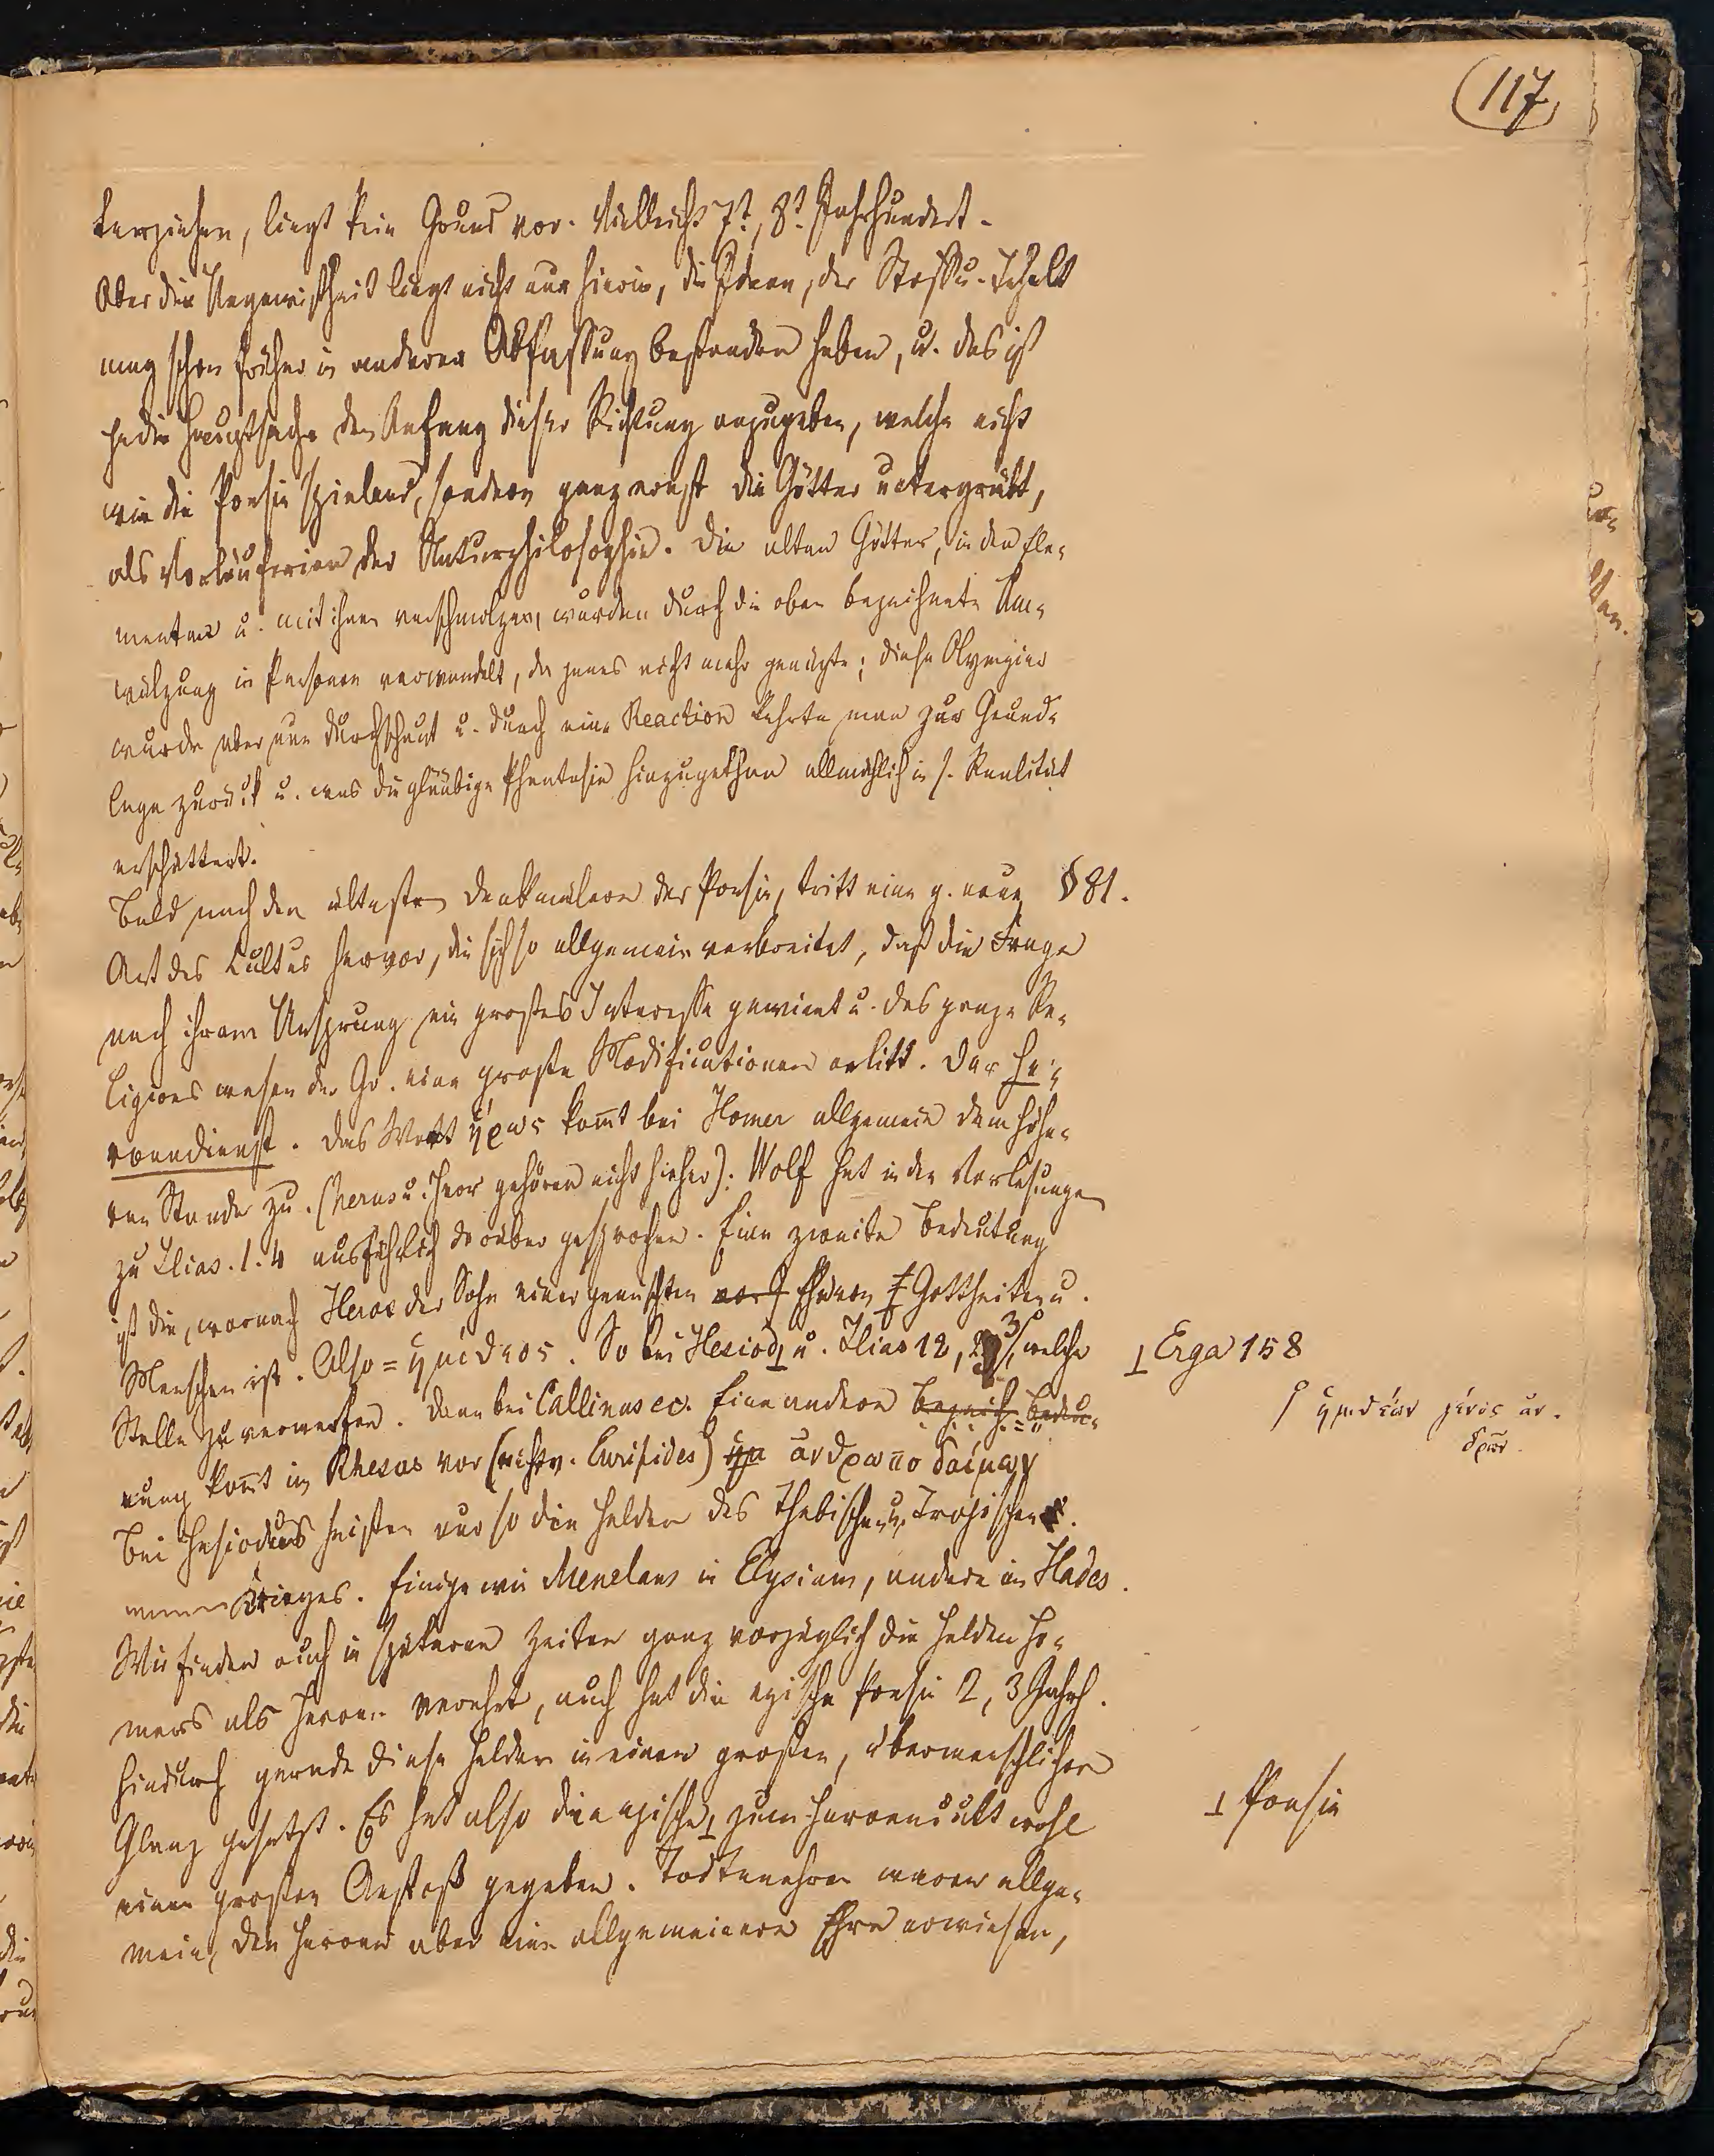 117
terziehen, liegt kein Grund vor. Vielleicht 7t, 8t Jahrhundert.
Aber die Ungewißheit liegt nicht nur hierin, die Ideen, der Stoff u. Inhalt
mag schon früher in anderer Abfassung bestanden haben, u. das ist
ja die Hauptsache den Anfang dieser Richtung anzugeben, welche nicht
wie die Poesie spielend, sondern ganz ernst die Götter untergräbt,
als Vorläuferion der Naturphilosophie. Die alten Götter, in den Ele-
menten u. mit ihnen verschmolzen, wurden durch die oben bezeichnete Um-
wälzung in Personen verwandelt, da jenes nicht mehr genügte; diese Olympier
wurde aber nun durchschaut u. durch eine Reaction kehrte man zur Grund-
lage zurück u. was die gläubige Phantasie hinzugethan allmählich in s. Realität
erschüttert.
Bald nach den ältesten Denkmälern der Poesie, tritt eine g. neue § 81.
Art des Cultus hervor, die sich so allgemein verbreitet, daß die Frage
nach ihrem Ursprung ein großes Interesse gewinnt u. das ganze Re-
ligionswesen der Gr. eine große Modificationen erlitt. Der He-
roendienst. Das Wort ἥρως kom̄t bei Homer allgemein dem höhe-
ren Stande zu. (herus u. Herr gehören nicht hieher). Wolf hat in den Vorlesungen
zu Ilias. 1. 4 ausführlich darüber gesprochen. Eine zweite Bedeutung
ist die, wornach Heros der Sohn einer gemischten Ehe von Gottheiten u.
Menschen ist. Also = ἡμίθεος. So bei Hesiod⊥ u. Ilias 12, 23, welche
⊥ Erga 158
ἡμιθέων γένος ἀν-
δρῶν.
Stelle zu verwerfen. Dann bei Callinus ec. Eine andere Bedeu-
tung kom̄t im Rhesus vor (nicht v. Euripides) ἀνθρωποδαίμων
Bei Hesiodus heißen nur so die Helden des Thebischen u. Trojischen
Krieges. Einige wie Menelaus in Elysium, andere im Hades.
Wir finden auch in späteren Zeiten ganz vorzüglich die Helden Ho-
mers als Heroen verehrt, auch hat die epische Poesie 2, 3 Jahrh.
hindurch gerade diese Helden in einen großen, übermenschlichen
Glanz gesetzt. Es hat also die epische⊥ zum Heroencult wohl
⊥ Poesie
einen großen Anstoß gegeben. Todtenehren waren allge-
mein, den Heroen aber eine allgemeinere Ehre erwiesen,